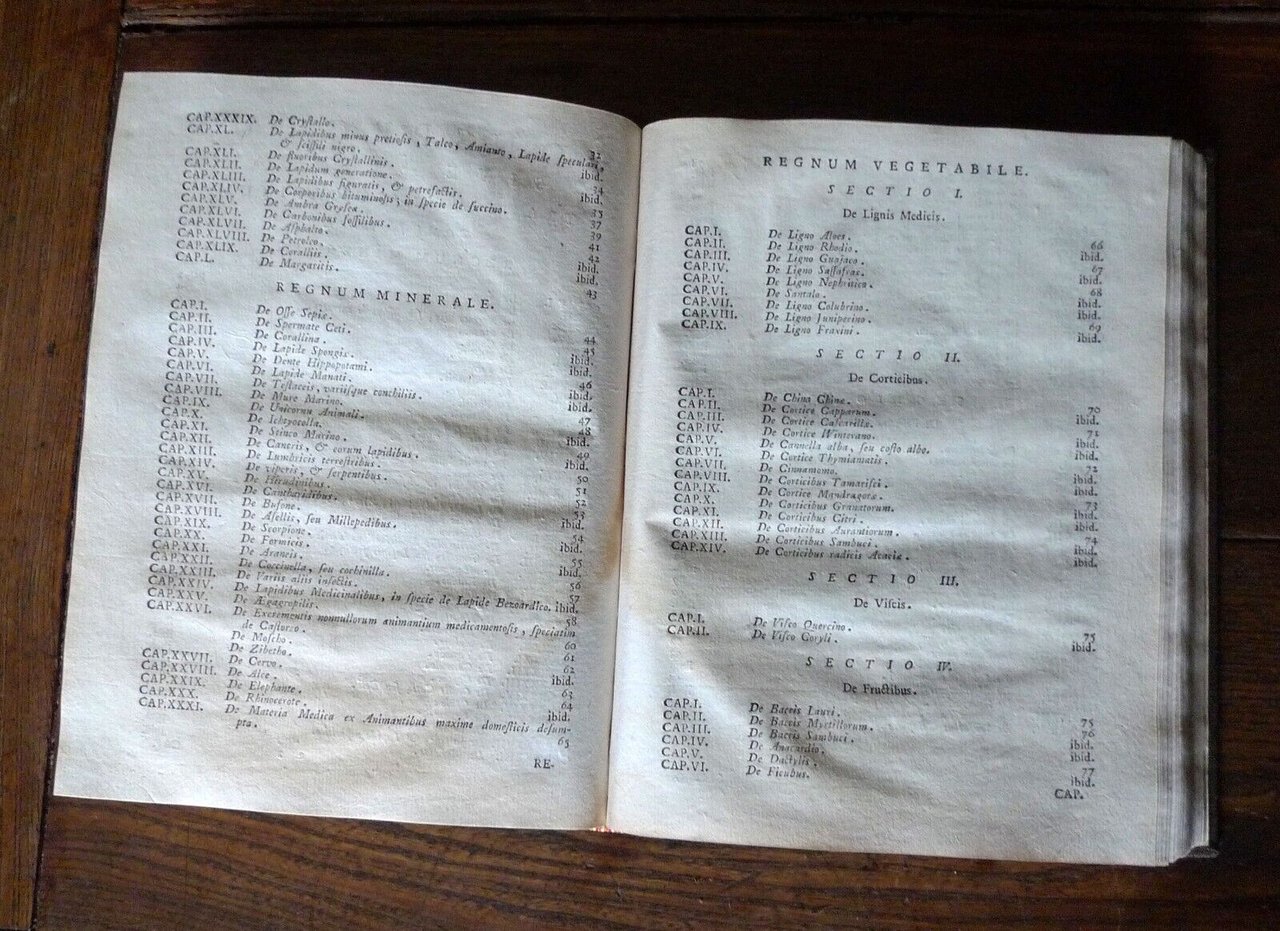 CAP.XXXIX. De Cryſtallo. 32
CAP.XL. De Lapidibus minus pretioſis, Talco, Amianto, Lapide ſpeculari,
& ſciſſili nigro. ibid.
CAP.XLI. De fluoribus Cryſtallinis. 34
CAP.XLII. De Lapidum generatione. ibid.
CAP.XLIII. De Lapidibus figuratis, & petrefactis. 35
CAP.XLIV. De Corporibus bituminoſis, in ſpecie de ſuccino. 37
CAP.XLV. De Ambra Gryſea. 39
CAP.XLVI. De Carbonibus foſſilibus. 41
CAP.XLVII. De Aſphalto. 42
CAP.XLVIII. De Petroleo. ibid.
CAP.XLIX. De Coralliis. ibid.
CAP.L. De Margaritis. 43
REGNUM MINERALE.
CAP.I. De Oſſe Sepiæ. 44
CAP.II. De Spermate Ceti. 45
CAP.III. De Corallina. ibid.
CAP.IV. De Lapide Spongiæ. ibid.
CAP.V. De Dente Hippopotami. 46
CAP.VI. De Lapide Manati. ibid.
CAP.VII. De Teſtaceis, variiſque conchiliis. ibid.
CAP.VIII. De Mure Marino. 47
CAP.IX. De Unicornu Animali. 48
CAP.X. De Ichtyocolla. ibid.
CAP.XI. De Scinco Marino. 49
CAP.XII. De Cancris, & eorum lapidibus. ibid.
CAP.XIII. De Lumbricis terreſtribus. 50
CAP.XIV. De viperis, & ſerpentibus. 51
CAP.XV. De Hirudinibus. 52
CAP.XVI. De Cantharidibus. 53
CAP.XVII. De Bufone. ibid.
CAP.XVIII. De Aſellis, ſeu Millepedibus. 54
CAP.XIX. De Scorpione. ibid.
CAP.XX. De Formicis. 55
CAP.XXI. De Araneis. ibid.
CAP.XXII. De Coccinella, ſeu cochinilla. 56
CAP.XXIII. De Variis aliis inſectis. 57
CAP.XXIV. De Lapidibus Medicinalibus, in ſpecie de Lapide Bezoardico. ibid.
CAP.XXV. De Ægagropilis. 58
CAP.XXVI. De Excrementis nonnullorum animantium medicamentoſis, ſpeciatim
de Caſtoreo. 60
De Moſcho. 61
De Zibetho. 62
CAP.XXVII. De Cervo. ibid.
CAP.XXVIII. De Alce. 63
CAP.XXIX. De Elephante. 64
CAP.XXX. De Rhinocerote. ibid.
CAP.XXXI. De Materia Medica ex Animantibus maxime domeſticis deſum-
pta. 65
RE-
REGNUM VEGETABILE.
SECTIO I.
De Lignis Medicis.
CAP.I. De Ligno Aloes. 66
CAP.II. De Ligno Rhodio. ibid.
CAP.III. De Ligno Guajaco. 67
CAP.IV. De Ligno Saſſafras. ibid.
CAP.V. De Ligno Nephritico. 68
CAP.VI. De Santalo. ibid.
CAP.VII. De Ligno Colubrino. ibid.
CAP.VIII. De Ligno Juniperino. 69
CAP.IX. De Ligno Fraxini. ibid.
SECTIO II.
De Corticibus.
CAP.I. De China Chinæ. 70
CAP.II. De Cortice Capparum. ibid.
CAP.III. De Cortice Caſcarillæ. 71
CAP.IV. De Cortice Winterano. ibid.
CAP.V. De Cannella alba, ſeu coſto albo. ibid.
CAP.VI. De Cortice Thymiamatis. 72
CAP.VII. De Cinnamomo. ibid.
CAP.VIII. De Corticibus Tamariſci. ibid.
CAP.IX. De Cortice Mandragoræ. 73
CAP.X. De Corticibus Granatorum. ibid.
CAP.XI. De Corticibus Citri. ibid.
CAP.XII. De Corticibus Aurantiorum. 74
CAP.XIII. De Corticibus Sambuci. ibid.
CAP.XIV. De Corticibus radicis Acaciæ. ibid.
SECTIO III.
De Viſcis.
CAP.I. De Viſco Quercino. 75
CAP.II. De Viſco Coryli. ibid.
SECTIO IV.
De Fructibus.
CAP.I. De Baccis Lauri. 75
CAP.II. De Baccis Myrtillorum. 76
CAP.III. De Baccis Sambuci. ibid.
CAP.IV. De Anacardio. ibid.
CAP.V. De Dactylis. 77
CAP.VI. De Ficubus. ibid.
CAP.